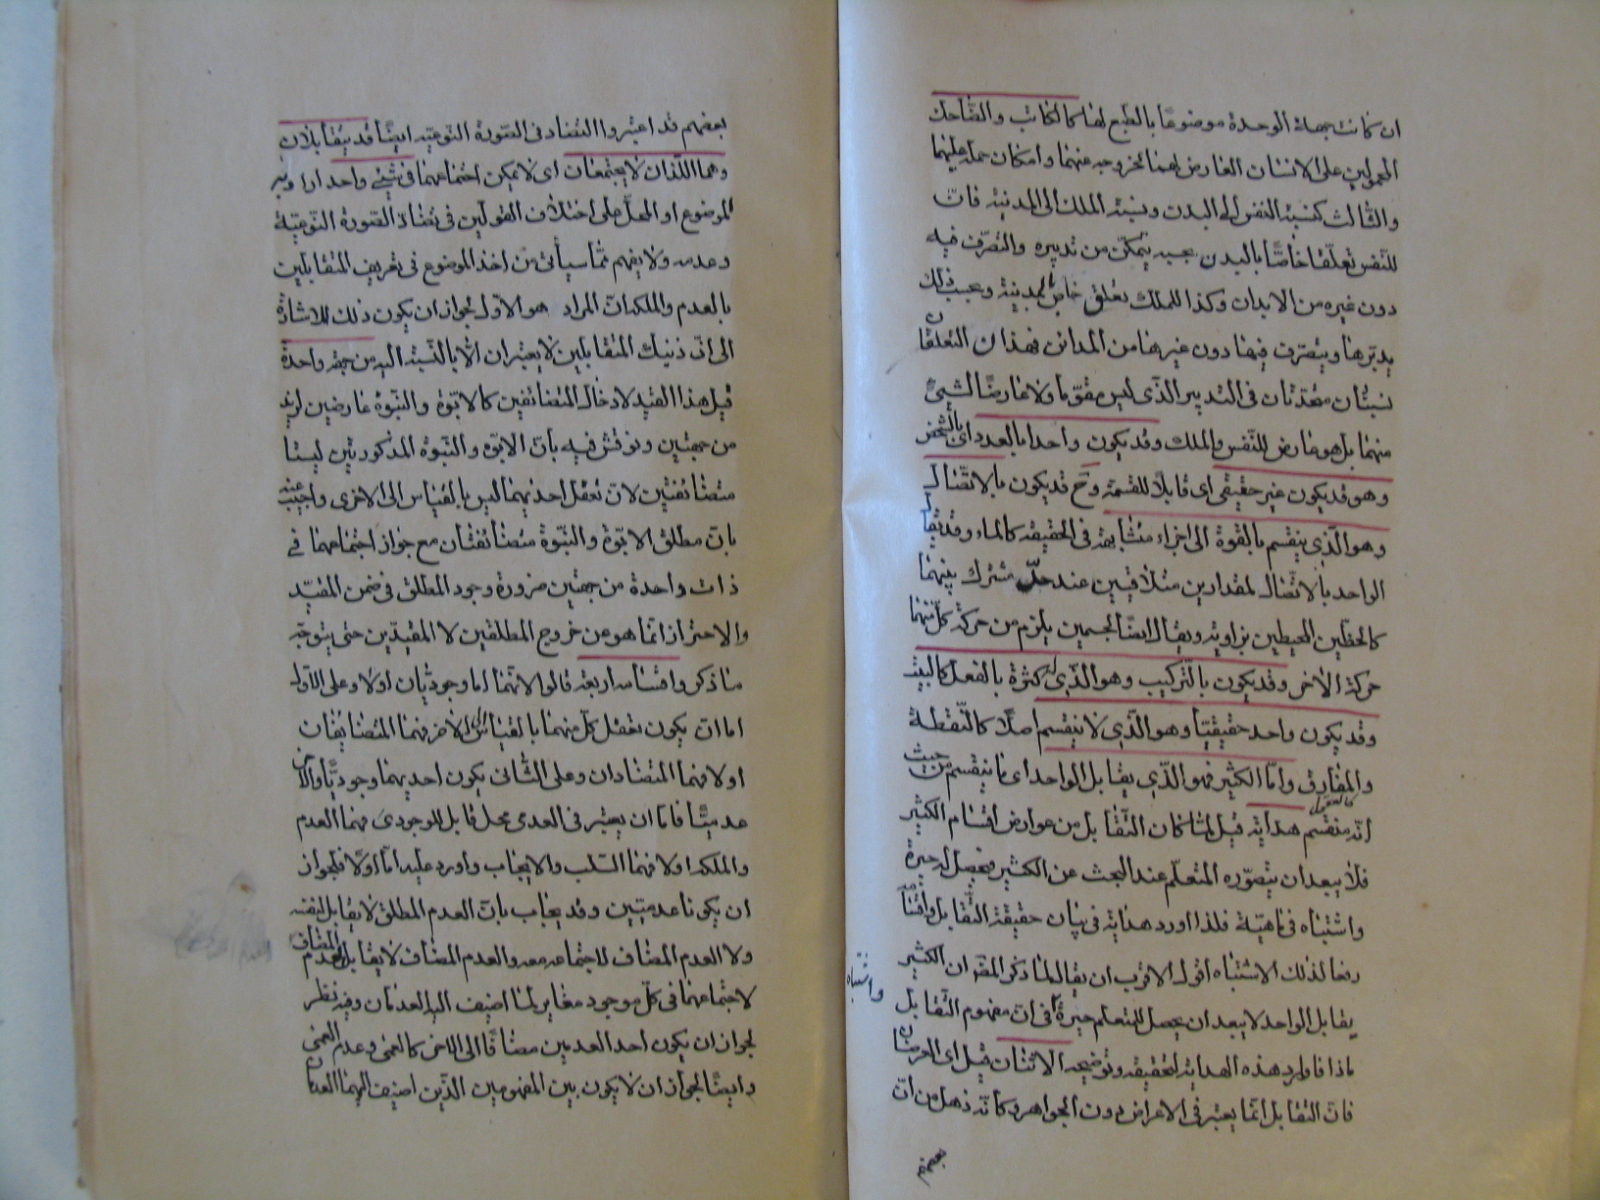 ان كانت جهة الوحدة موضوعا بالطبع لهما كالكاتب والضاحك
المحمولين على الانسان العارض لهما لخروجه عنهما وامكان حمله عليهما
والثالث كنسبة النفس الى البدن ونسبة الملك الى المدينة فان
للنفس تعلقا خاصا بالبدن بحسبه يتمكن من تدبيره والتصرف فيه
دون غيره من الابدان وكذا للملك تعلق خاص لمدينة وبحسب ذلك
يدبرها ويتصرف فيها دون غيرها من المدائن فهذان التعلقان
نسبتان متحدتان فى التدبير الذى ليس مقوما ولا عارضا لشئ
منهما بل هو عارض للنفس والملك وقد يكون واحدا بالعدد اى بالشخص
وهو قد يكون غير حقيقى اى قابلا للقسمة وح قد يكون بالاتصال
وهو الذى ينقسم بالقوة الى اجزاء متشابهة فى الحقيقة كالماء وقد يقال
الواحد بالاتصال لمقدارين متلاقيين عند حد مشترك بينهما
كالخطين المحيطين بزاوية ويقال ايضا لجسمين يلزم من حركة كل منهما
حركة الآخر وقد يكون بالتركيب وهو الذى له كثرة بالفعل كالبيت
وقد يكون واحد حقيقيا وهو الذى لا ينقسم اصلا كالنقطة
والمفارق واما الكثير فهو الذى يقابل الواحد اى ما ينقسم من حيث
كالعقول
انه منقسم هداية قيل لما كان التقابل من عوارض اقسام الكثير
فلا يبعد ان يتصوره المتعلم عند البحث عن الكثير فيحصل له حيرة
واشتباه فى ماهيته فلذا اورد هداية فى بيان حقيقة التقابل واقسامه
رفعا لذلك الاشتباه اقول الاقرب ان يقال لما ذكر المصنف ان الكثير
واشتباه
يقابل الواحد لا يبعد ان يحصل للمتعلم حيرة فى ان مفهوم التقابل
ماذا فاورد هذه الهداية لتحقيقه وتوضيحه الاثنان قيل اى العرضان
فان التقابل انما يعتبر فى الاعراض دون الجواهر وكانه ذهل من ان
بعضهم
بعضهم قد اعتبروا التضاد فى الصورة النوعية ايضا قد يتقابلان
وهما اللذان لا يجتمعان اى لا يمكن اجتماعهما فى شئ واحد
الموضوع او المحل على اختلاف القولين فى تضاد الصورة النوعية
وعدمه ولا يفهم مما سيأتى من اخذ الموضوع فى تعريف المتقابلين
بالعدم والملكة ان المراد هو الاول لجواز ان يكون ذلك للاشارة
الى ان ذينك المتقابلين لا يعتبران الا بالنسبة اليه من جهة واحدة
قيل هذا القيد لادخال المتضائفين كالابوة والبنوة عارضين لزيد
من جهتين ونوقش فيه بان الابوة والبنوة المذكورتين ليستا
متضائفتين لان تعقل احديهما ليس بالقياس الى الاخرى واجيب عنه
بان مطلق الابوة والبنوة متضائفتان مع جواز اجتماعهما فى
ذات واحدة من جهتين ضرورة وجود المطلق فى ضمن المقيد
والاحتراز انما هو من خروج المطلقين لا المقيدين حتى يتوجه
ما ذكر واقسامه اربعة قالوا لانهما اما وجوديان اولا وعلى الاول
اما ان يكون تعقل كل منهما بالقياس الى الاخر فهما المتضايفان
او لا فهما المتضادان وعلى الثانى يكون احديهما وجوديا والآخر
عدميا فاما ان يعتبر فى العدمى محل قابل للوجودى فهما العدم
والملكة او لا فهما السلب والايجاب واورد عليه اما اولا فلجواز
ان يكونا عدميين وقد يجاب بان العدم المطلق لا يقابل نفسه
ولا العدم المضاف لاجتماعه معه والعدم المضاف لا يقابل العدم المضاف
لاجتماعهما فى كل موجود مغاير لما اضيف اليه العدمان وفيه نظر
لجواز ان يكون احد العدمين مضافا الى الآخر كالعمى وعدم العمى
وايضا لجواز ان لا يكون بين المفهومين الذين اضيف اليهما العدمان